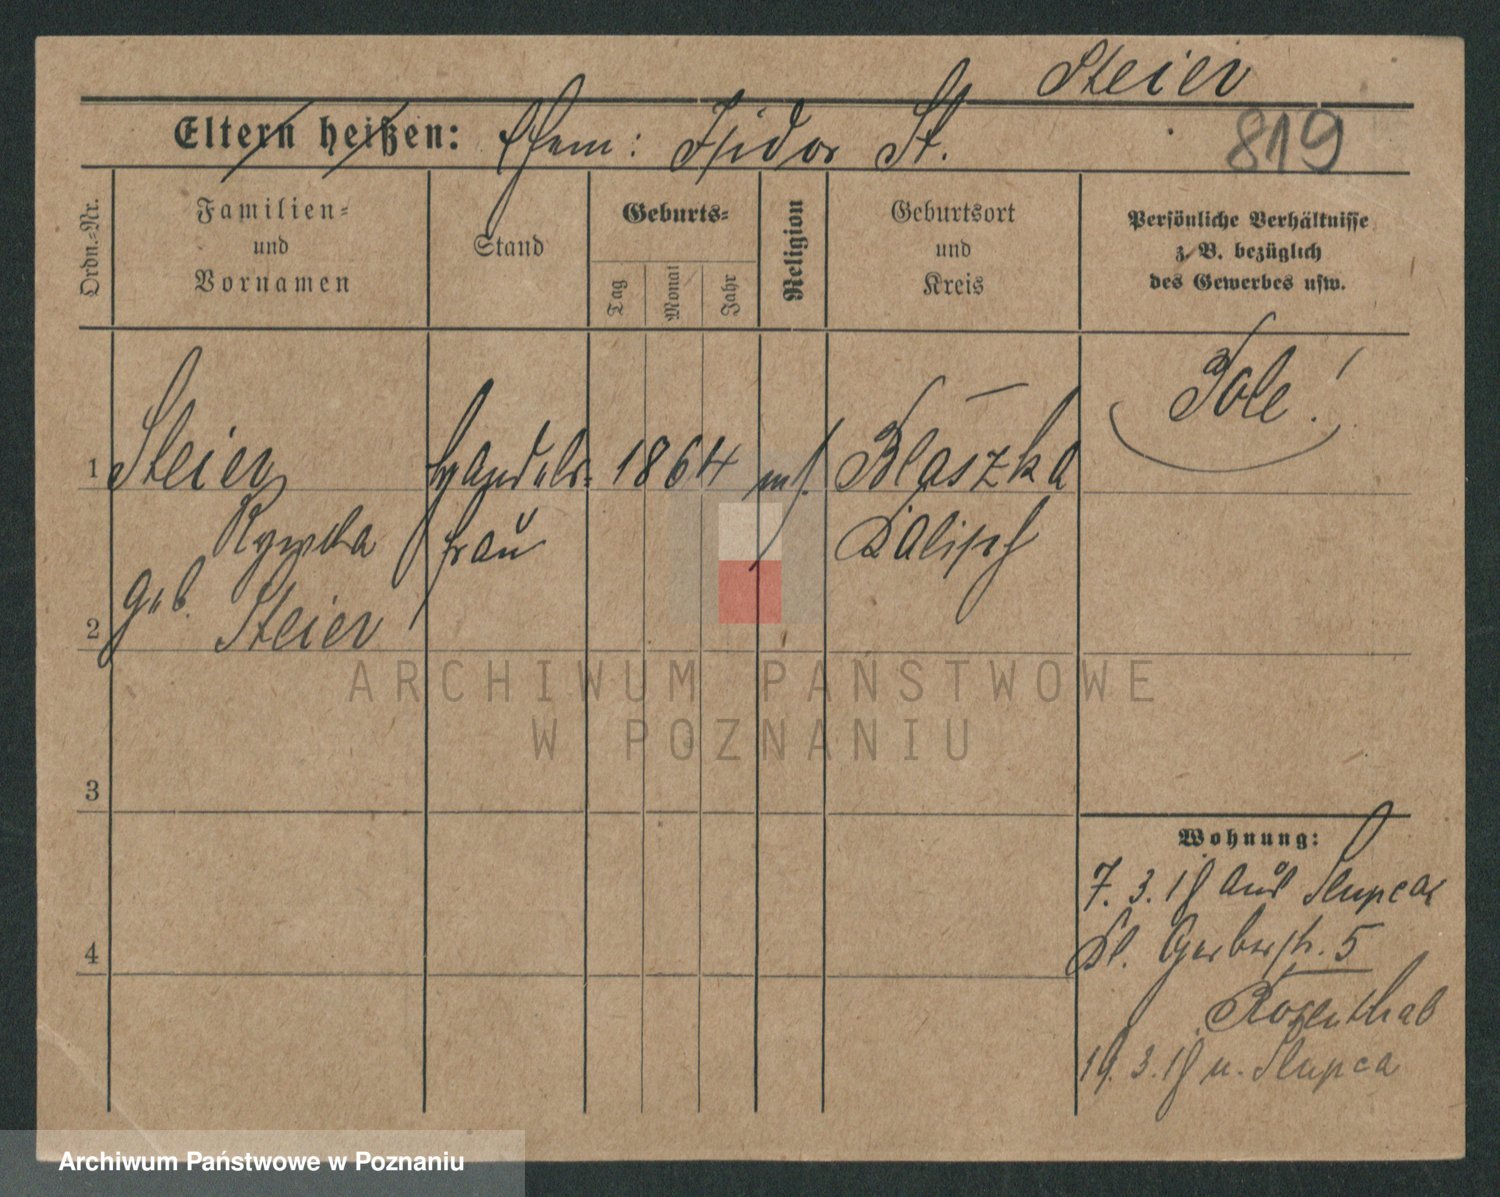 Steier
Eltern heißen: Ehem: Isidor St. 819
Ordn.-Nr.
Familien-
und
Vornamen
Stand
Geburts-
Tag
Monat
Jahr
Religion
Geburtsort
und
Kreis
Persönliche Verhältnisse
z. B. bezüglich
des Gewerbes usw.
Pole!
1 Steier Handels- 1864 mos. Blaszka
Rywka frau Kalisch
geb.
2 Steier
ARCHIWUM PAŃSTWOWE
W POZNANIU
3
Wohnung:
7. 3. 18 aus Slupca
4 Kl. Gerberstr. 5
Rosenthal
19. 3. 18 n. Slupca
Archiwum Państwowe w Poznaniu